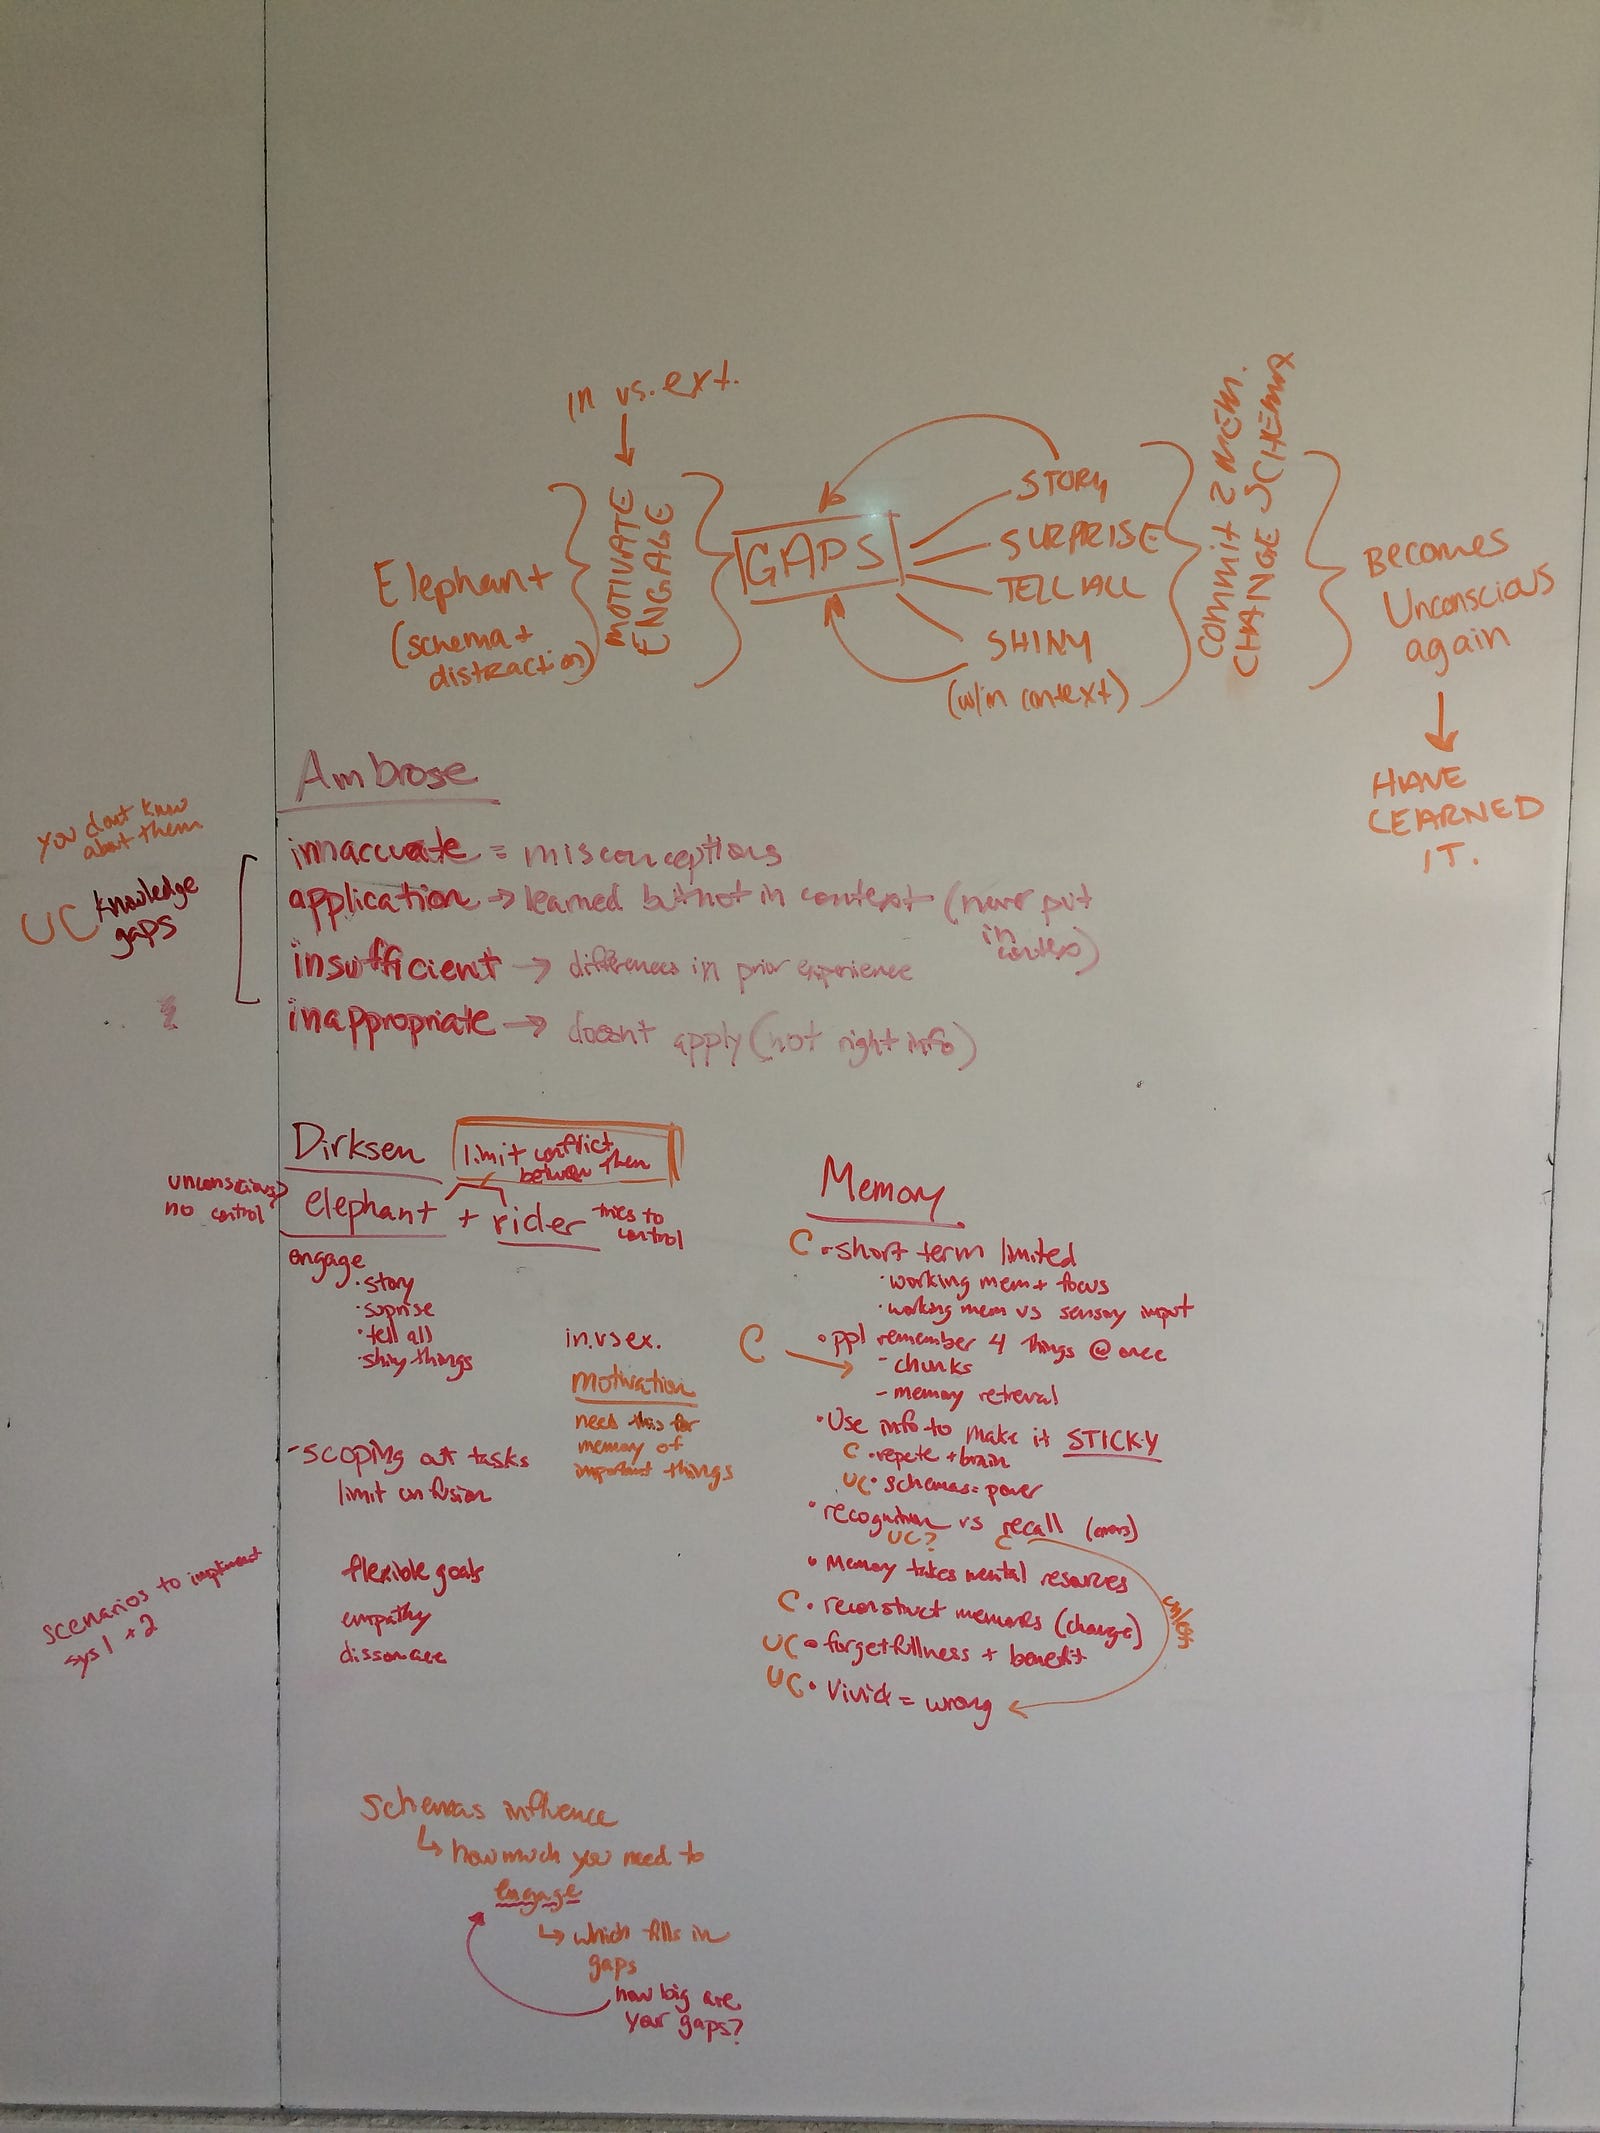 in vs. ext.
MOTIVATE
ENGAGE
Elephant
(schema +
distraction)
GAPS
STORY
SURPRISE
TELL ALL
SHINY
(w/in context)
COMMIT 2 MEM.
CHANGE SCHEMA
Becomes
Unconscious
again
HAVE
LEARNED
IT.
Ambrose
you dont know
about them
UC knowledge
gaps
innaccurate = misconceptions
application → learned but not in context (never put
in
context)
insufficient → differences in prior experience
inappropriate → doesnt apply (not right info)
Dirksen
limit conflict
between them
unconscious
no control
elephant + rider tries to
control
engage
· story
· suprise
· tell all
· shiny things
in. vs ex.
motivation
need this for
memory of
important things
- scoping out tasks
limit confusion
flexible goals
empathy
dissonance
scenarios to implement
sys 1 + 2
Memory
C · short term limited
· working mem + focus
· working mem vs sensory input
C → · ppl remember 4 things @ once
- chunks
- memory retreval
· Use info to make it STICKY
C · repete + brain
UC · schemas = power
· recognition vs recall (errors)
UC? C
· Memory takes mental resources
C · reconstruct memories (change)
UC · forgetfullness + benefit
UC · Vivid = wrong
Schemas influence
↳ how much you need to
engage
↳ which fills in
gaps
how big are
your gaps?